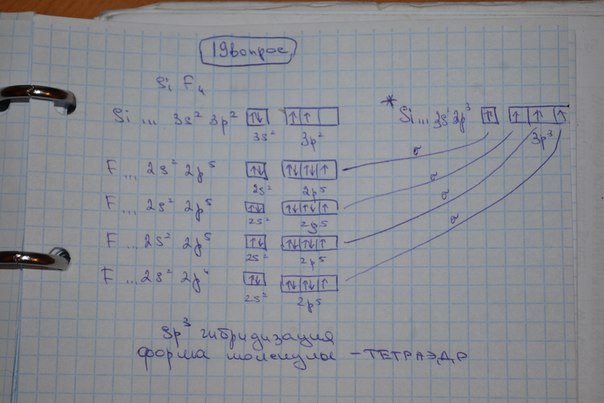 19 вопрос
Si F₄
Si ... 3s² 3p² ↑↓ ↑ ↑
3s² 3p²
* Si ... 3s¹ 3p³ ↑ ↑ ↑ ↑
3p³
F ... 2s² 2p⁵ ↑↓ ↑↓ ↑↓ ↑ σ
2s² 2p⁵
F ... 2s² 2p⁵ ↑↓ ↑↓ ↑↓ ↑ σ
2s² 2p⁵
F ... 2s² 2p⁵ ↑↓ ↑↓ ↑↓ ↑ σ
2s² 2p⁵
F ... 2s² 2p⁵ ↑↓ ↑↓ ↑↓ ↑ σ
2s² 2p⁵
sp³ гибридизация
форма молекулы - ТЕТРАЭДР